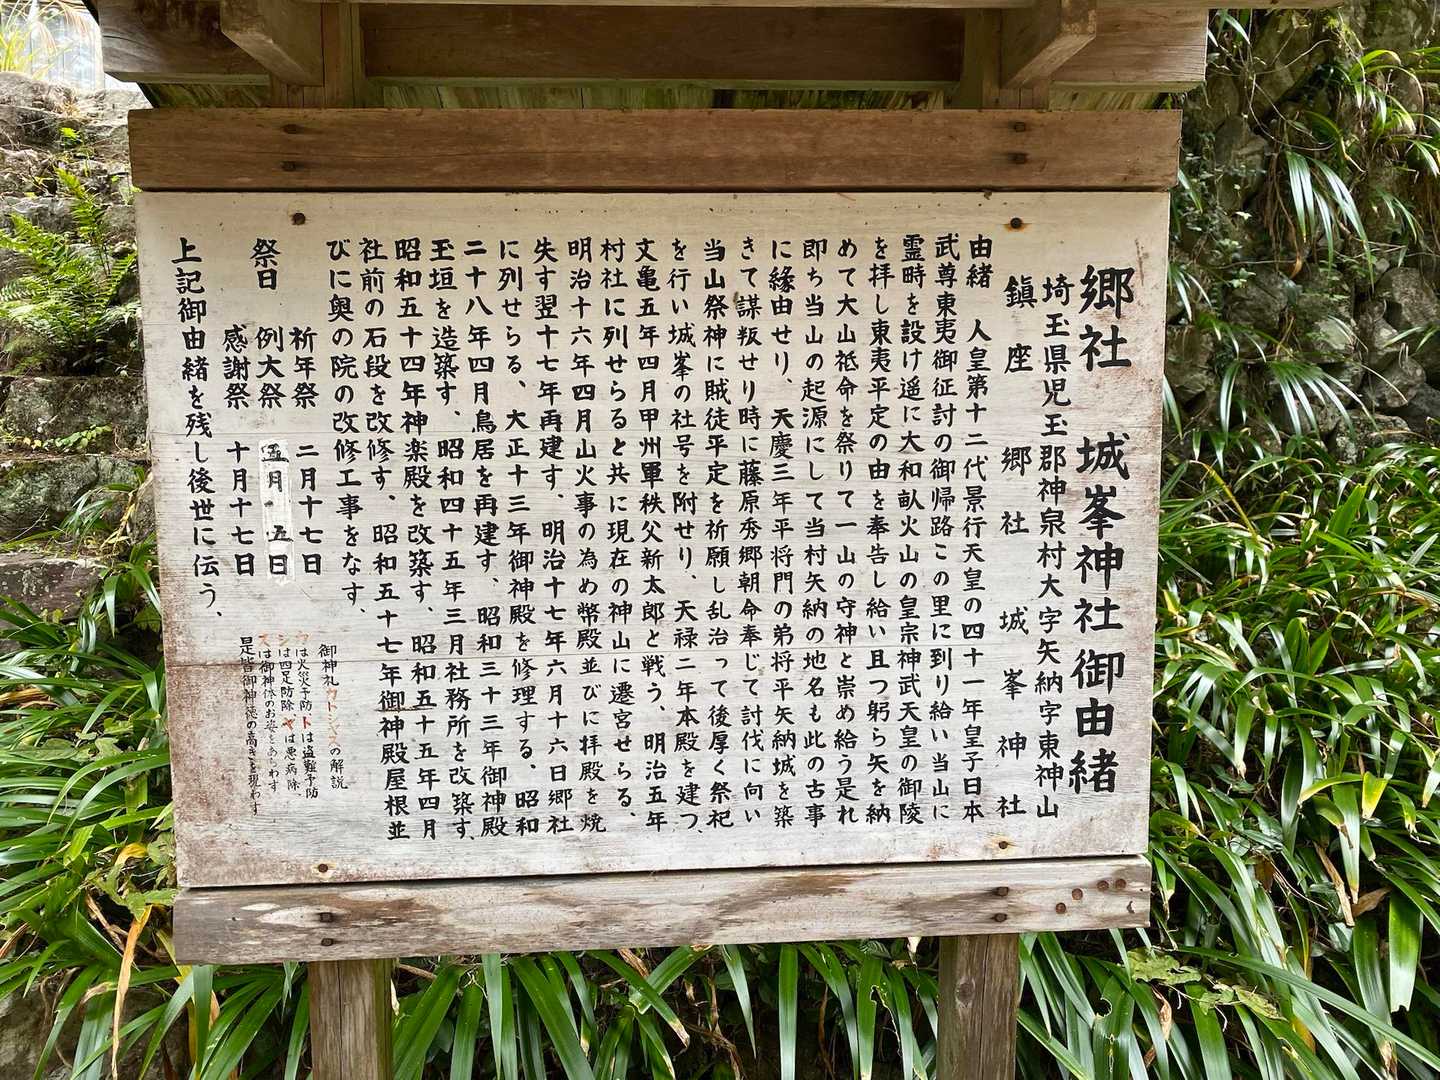 郷社 城峯神社御由緒
埼玉県児玉郡神泉村大字矢納字東神山
鎮座 郷社 城峯神社
由緒 人皇第十二代景行天皇の四十一年皇子日本
武尊東夷御征討の御帰路この里に到り給い当山に
霊時を設け遥に大和畝火山の皇宗神武天皇の御陵
を拝し東夷平定の由を奉告し給い且つ躬ら矢を納
めて大山祇命を祭りて一山の守神と崇め給う是れ
即ち当山の起源にして当村矢納の地名も此の古事
に縁由せり、天慶三年平将門の弟将平矢納城を築
きて謀叛せり時に藤原秀郷朝命奉じて討伐に向い
当山祭神に賊徒平定を祈願し乱治って後厚く祭祀
を行い城峯の社号を附せり、天禄二年本殿を建つ、
文亀五年四月甲州軍秩父新太郎と戦う、明治五年
村社に列せらると共に現在の神山に遷宮せらる、
明治十六年四月山火事の為め幣殿並びに拝殿を焼
失す翌十七年再建す、明治十七年六月十六日郷社
に列せらる、大正十三年御神殿を修理する、昭和
二十八年四月鳥居を再建す、昭和三十三年御神殿
玉垣を造築す、昭和四十五年三月社務所を改築す、
昭和五十四年神楽殿を改築す、昭和五十五年四月
社前の石段を改修す、昭和五十七年御神殿屋根並
びに奥の院の改修工事をなす、
祭日
祈年祭 二月十七日
例大祭 五月 五日
感謝祭 十月十七日
上記御由緒を残し後世に伝う、
御神礼ウトシヤスの解説
ウは火災予防トは盗難予防
シは四足防除ヤは悪病除、
スは御神体のお姿をあらわす
是皆御神徳の高きを現わす